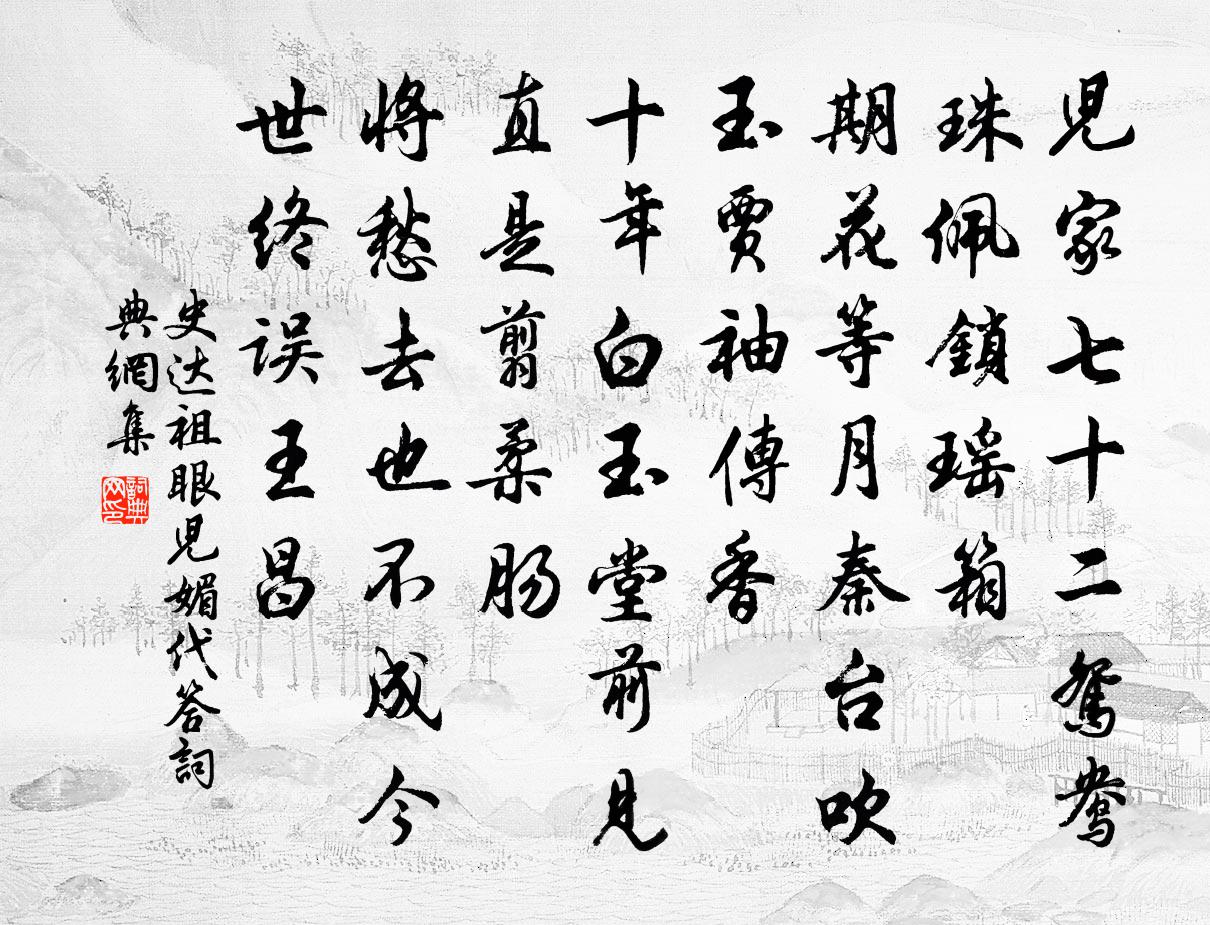 児家七十二鴛鸯
珠佩鎖瑶箱
期花等月秦台吹
玉賈袖傳香
十年白玉堂前見
直是翦柔肠
將愁去也不成今
世终误王昌
史达祖眼児媚代答詞
典網集
詞典
网印